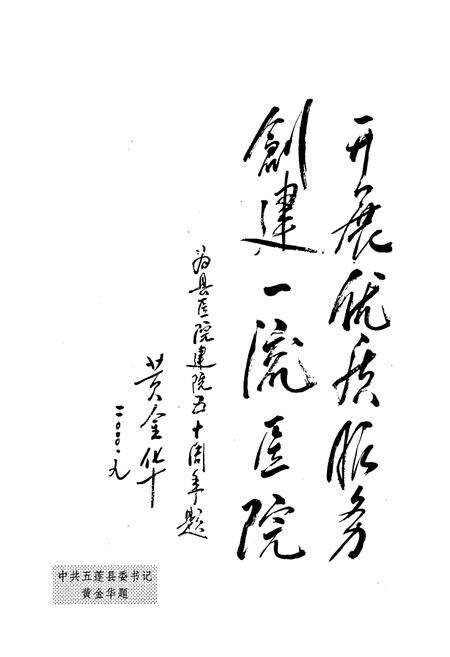 开展优质服务
創建一流医院
为县医院建院五十周年题
黄金华
二〇〇〇.九
中共五莲县委书记
黄金华题